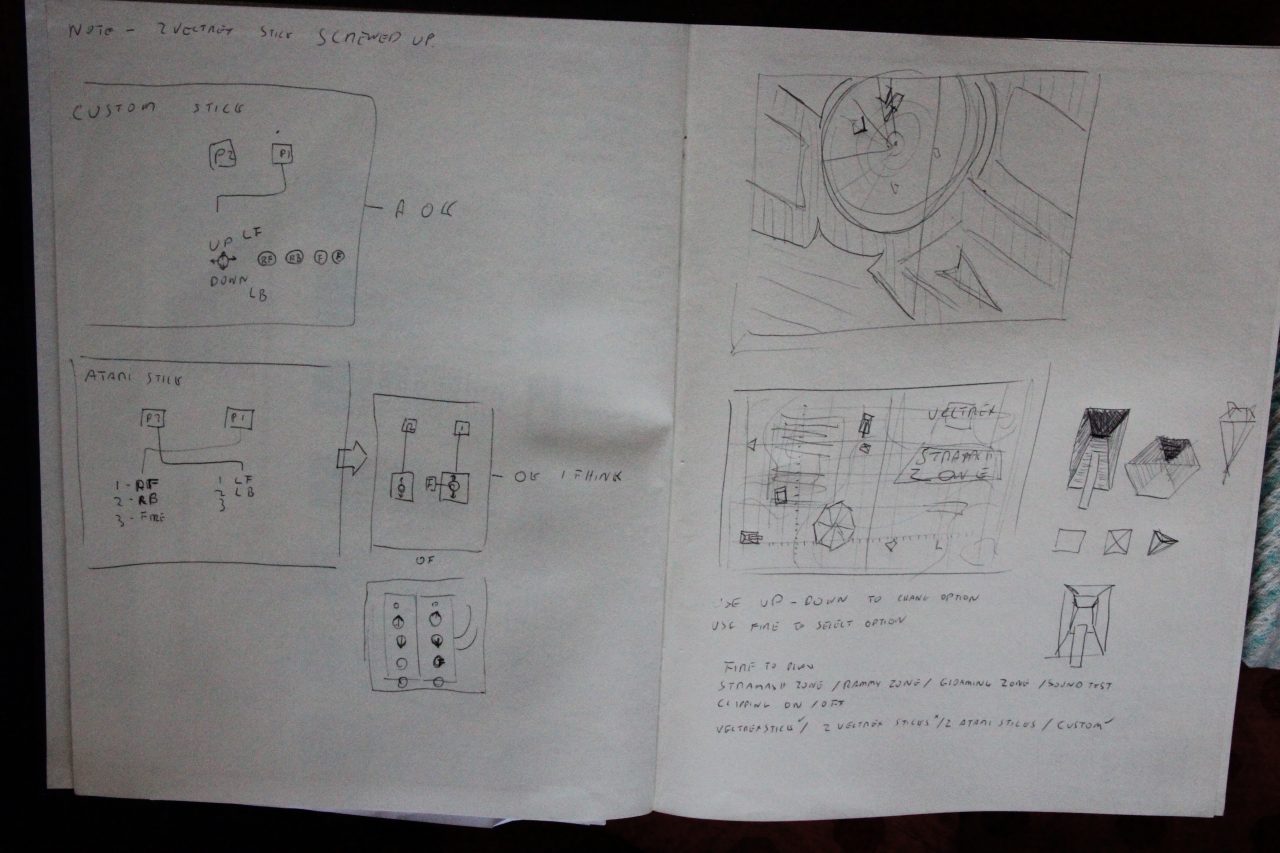 NOTE - 2 VECTREX STICK SCREWED UP.
CUSTOM STICK
P2 P1
A OK
UP LF
RF RB F F
DOWN
LB
ATARI STICK
P2 P1
1 - RF
2 - RB
3 - FIRE
1 LF
2 LB
3
2 1
F
OK I THINK
OF
VECTREX
STRAMASH
ZONE
USE UP - DOWN TO CHANGE OPTION
USE FIRE TO SELECT OPTION
FIRE TO PLAY
STRAMASH ZONE / RAMMY ZONE / GLOAMING ZONE / SOUND TEST
CLIPPING ON / OFF
VECTREX STICK ✓ / 2 VECTREX STICKS x / 2 ATARI STICKS / CUSTOM ✓